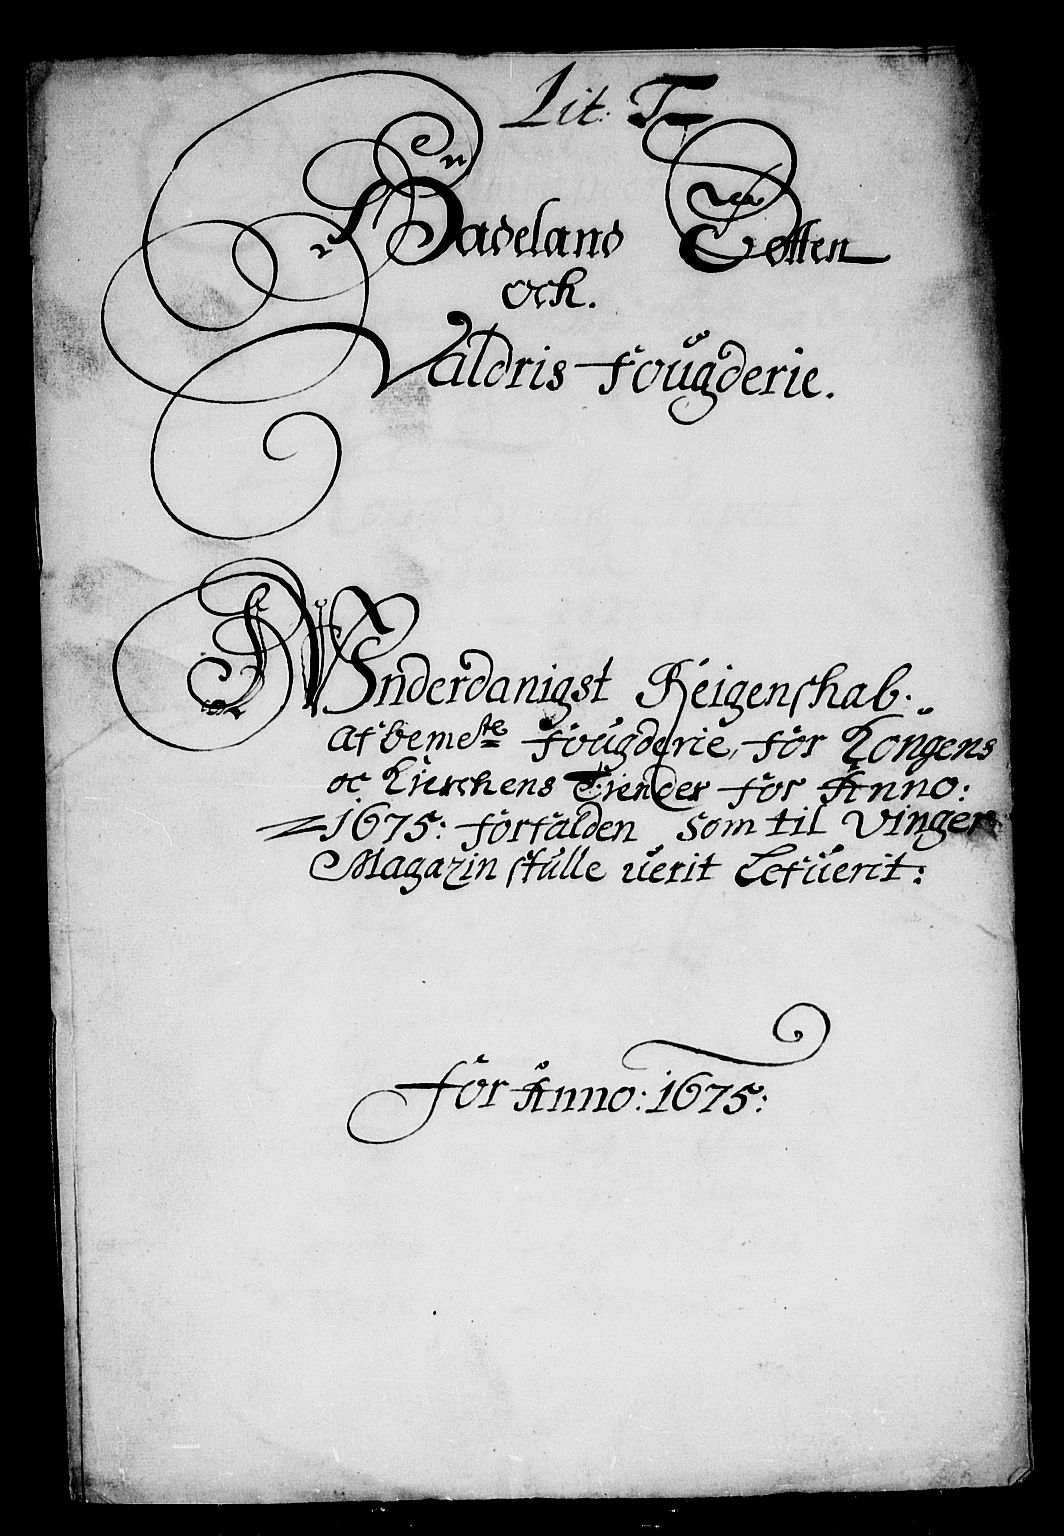 Lit: T
Hadeland Totten
och.
Valdris fougderie.
Vnderdanigst Reigenskab.
Af beme^te fougderie, for Kongens
oc Kierckens Tiender for Anno:
1675: forfalden som til Vinger
Magazin skulle verit Lefverit:
for Anno: 1675: